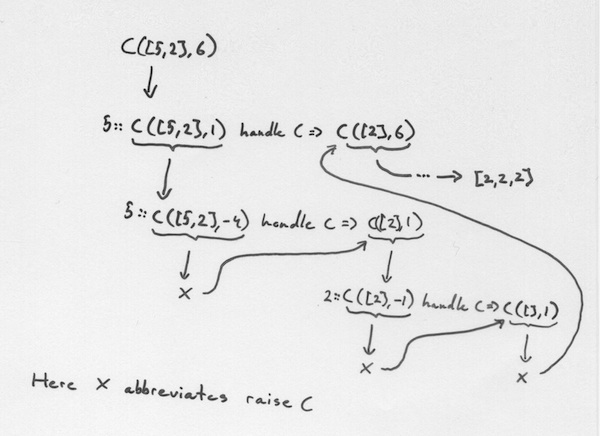 C([5,2],6)
5:: C([5,2],1) handle C => C([2],6)
... → [2,2,2]
5:: C([5,2],-4) handle C => C([2],1)
X
2::C([2],-1) handle C => C([],1)
X
X
Here X abbreviates raise C